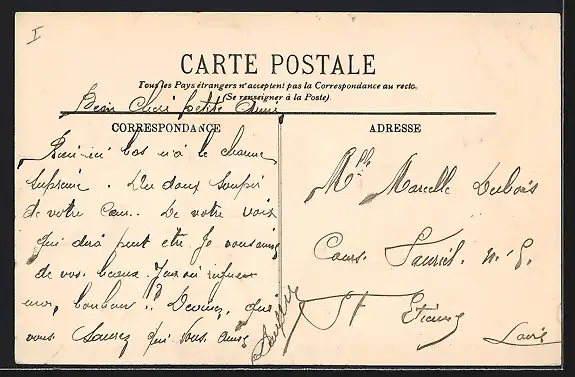 I
CARTE POSTALE
Tous les Pays étrangers n'acceptent pas la Correspondance au recto.
(Se renseigner à la Poste)
Bien Cheri petite Amie
CORRESPONDANCE
Rien ici bas n'a le charme
suprême. D'un doux soupir
de votre Cœur. De votre voix
qui dira peut être Je vous aime
de vos beaux Yeux où
mon bonheur!! Devinez, qui
vous Saurez qui vous aime
ADRESSE
Mlle Marcelle Dubois
Cours. Fauriel. n° 9.
St Etienne
Loire